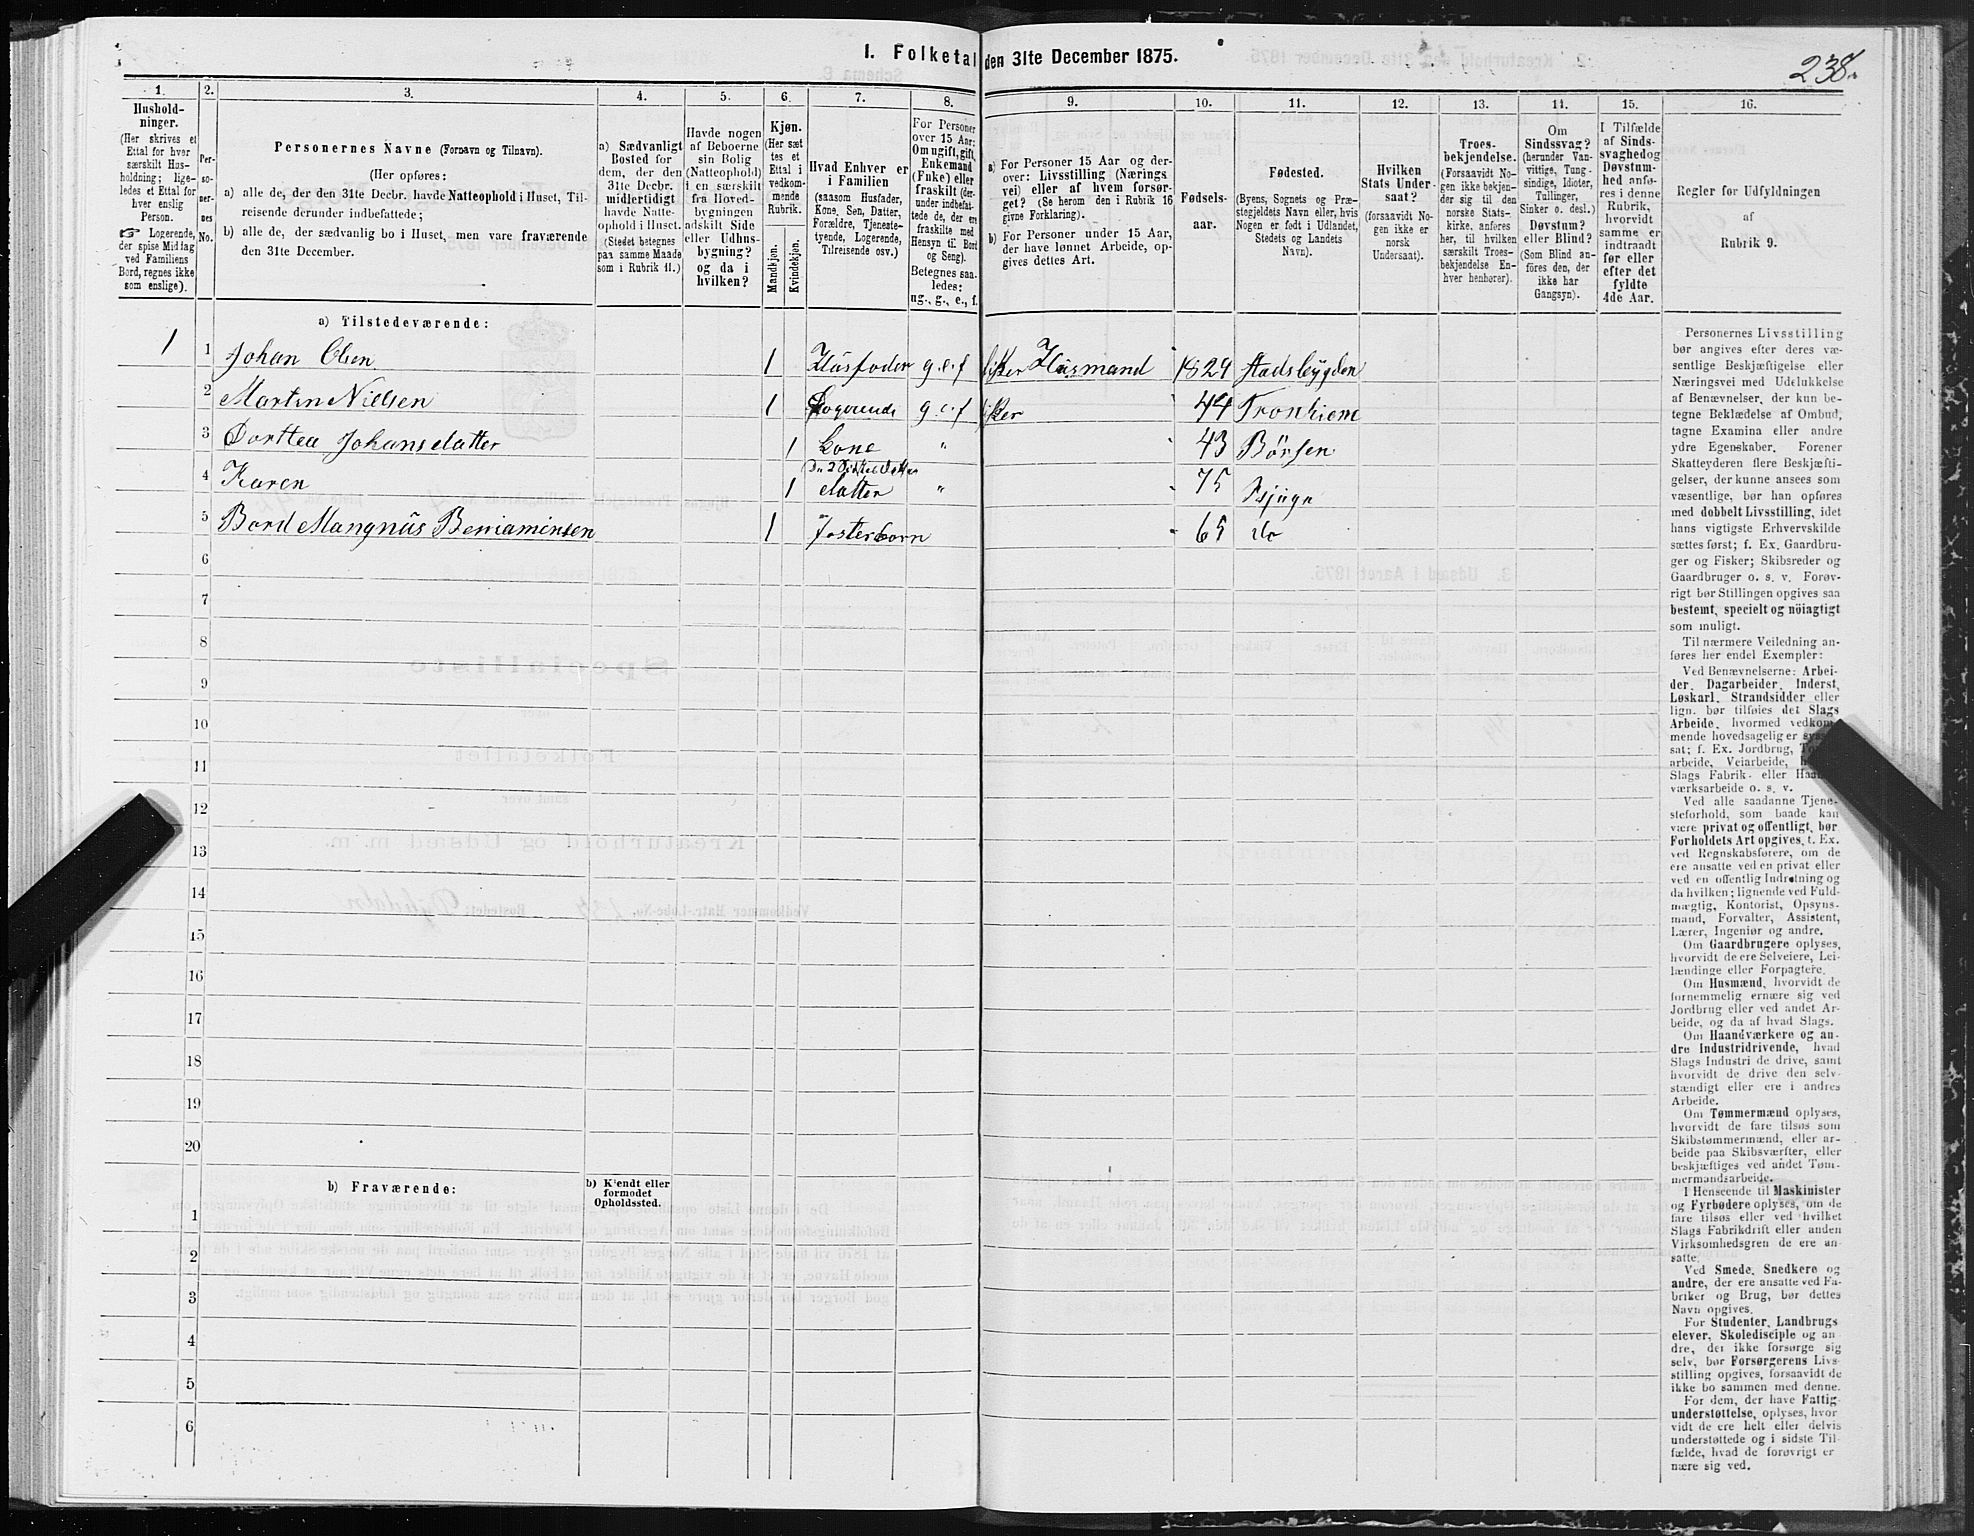 1. Folketal den 31te December 1875.
238.
1.
Hushold-
ninger.
(Her skrives et
Ettal for hver
særskilt Hus-
holdning; lige-
ledes et Ettal for
hver enslig
Person.
☞ Logerende,
der spise Middag
ved Familiens
Bord, regnes ikke
som enslige).
2.
Per-
so-
ner-
nes
No.
3.
Personernes Navne (Fornavn og Tilnavn).
(Her opføres:
a) alle de, der den 31te Decbr. havde Natteophold i Huset, Til-
reisende derunder indbefattede;
b) alle de, der sædvanlig bo i Huset, men vare fraværende
den 31te December.
4.
a) Sædvanligt
Bosted for
dem, der den
31te Decbr.
midlertidigt
havde Natte-
ophold i Huset.
(Stedet betegnes
paa samme Maade
som i Rubrik 11.)
5.
Havde nogen
af Beboerne
sin Bolig
(Natteophold)
i en særskilt
fra Hoved-
bygningen
adskilt Side
eller Udhus-
bygning?
og da i
hvilken?
6.
Kjøn.
(Her sæt-
tes et
Ettal i
vedkom-
mende
Rubrik.
Mandkjøn.
Kvindekjøn.
7.
Hvad Enhver er
i Familien
(saasom Husfader,
Kone, Søn, Datter,
Forældre, Tjeneste-
tyende, Logerende,
Tilreisende osv.)
8.
For Personer
over 15 Aar:
Om ugift, gift,
Enkemand
(Enke) eller
fraskilt (der-
under indbefat-
tede de, der ere
fraskilte med
Hensyn til Bord
og Seng).
Betegnes saa-
ledes:
ug., g., e., f.
9.
a) For Personer 15 Aar og der-
over: Livsstilling (Nærings
vei) eller af hvem forsør-
get? (Se herom den i Rubrik 16
givne Forklaring).
b) For Personer under 15 Aar,
der have lønnet Arbeide, op-
gives dettes Art.
10.
Fødsels-
aar.
11.
Fødested.
(Byens, Sognets og Præ-
stegjeldets Navn eller, hvis
Nogen er født i Udlandet,
Stedets og Landets
Navn).
12.
Hvilken
Stats Under-
saat?
(forsaavidt No-
gen ikke er
norsk
Undersaat).
13.
Troes-
bekjendelse.
(Forsaavidt No-
gen ikke bekjen-
der sig til den
norske Stats-
kirke, anføres
her, til hvilken
særskilt Troes-
bekjendelse En-
hver henhører).
14.
Om
Sindssvag?
(herunder Van-
vittige, Tung-
sindige, Idioter,
Tullinger,
Sinker o. desl.)
Døvstum?
eller Blind?
(Som Blind an-
føres den, der
ikke har
Gangsyn).
15.
I Tilfælde
af Sinds-
svaghed og
Døvstum-
hed anfø-
res i denne
Rubrik,
hvorvidt
samme er
indtraadt
før eller
efter det
fyldte
4de Aar.
16.
Regler for Udfyldningen
af
Rubrik 9.
a) Tilstedeværende:
1 1 Johan Olsen 1 Husfader g.e.f fisker Husmand 1829 Stadsbygden
2 Martin Nielsen 1 Logerende g.e.f fisker 44 Tronhiem
3 Dorttea Johansdatter 1 Kone " 43 Børsen
4 Karen 1 datter " 75 Bjugn
5 Bord Mangnus Beniaminsen 1 Fosterbarn 65 do
6
7
8
9
10
11
12
13
14
15
16
17
18
19
20
b) Fraværende:
b) Kjendt eller
formodet
Opholdssted.
1
2
3
4
5
6
Personernes Livsstilling
bør angives efter deres væ-
sentlige Beskjæftigelse eller
Næringsvei med Udelukkelse
af Benævnelser, der kun be-
tegne Beklædelse af Ombud,
tagne Examina eller andre
ydre Egenskaber. Forener
Skatteyderen flere Beskjæfti-
gelser, der kunne ansees som
væsentlige, bør han opføres
med dobbelt Livsstilling, idet
hans vigtigste Erhvervskilde
sættes først; f. Ex. Gaardbru-
ger og Fisker; Skibsreder og
Gaardbruger o. s. v. Forøv-
rigt bør Stillingen opgives saa
bestemt, specielt og nöiagtigt
som muligt.
Til nærmere Veiledning an-
føres her endel Exempler:
Ved Benævnelserne: Arbei-
der, Dagarbeider, Inderst,
Løskarl, Strandsidder eller
lign. bør tilføies det Slags
Arbeide, hvormed vedkom-
mende hovedsagelig er syssel-
sat; f. Ex. Jordbrug,
arbeide, Veiarbeide,
Slags Fabrik- eller Haand-
værksarbeide o. s. v.
Ved alle saadanne Tjene-
steforhold, som baade kan
være privat og offentligt, bør
Forholdets Art opgives, t. Ex.
ved Regnskabsførere, om de
ere ansatte ved en privat eller
ved en offentlig Indretning og
da hvilken; lignende ved Fuld-
mægtig, Kontorist, Opsyns-
mand, Forvalter, Assistent,
Lærer, Ingeniør og andre.
Om Gaardbrugere oplyses,
hvorvidt de ere Selveiere, Lei-
lændinge eller Forpagtere.
Om Husmænd, hvorvidt de
fornemmelig ernære sig ved
Jordbrug eller ved andet Ar-
beide, og da af hvad Slags.
Om Haandværkere og an-
dre Industridrivende, hvad
Slags Industri de drive, samt
hvorvidt de drive den selv-
stændigt eller ere i andres
Arbeide.
Om Tømmermænd oplyses,
hvorvidt de fare tilsøs som
Skibstømmermænd, eller ar-
beide paa Skibsværfter, eller
beskjæftiges ved andet Tøm-
mermandsarbeide.
I Henseende til Maskinister
og Fyrbødere oplyses, om de
fare tilsøs eller ved hvilket
Slags Fabrikdrift eller anden
Virksomhedsgren de ere an-
satte.
Ved Smede, Snedkere og
andre, der ere ansatte ved Fa-
briker og Brug, bør dettes
Navn opgives.
For Studenter, Landbrugs
elever, Skoledisciple og an-
dre, der ikke forsørge sig
selv, bør Forsørgerens Livs-
stilling opgives, forsaavidt de
ikke bo sammen med denne.
For dem, der have Fattig-
understøttelse, oplyses, hvor
vidt de ere helt eller delvis
understøttede og i sidste Til-
fælde, hvad de forøvrigt er
nære sig ved.